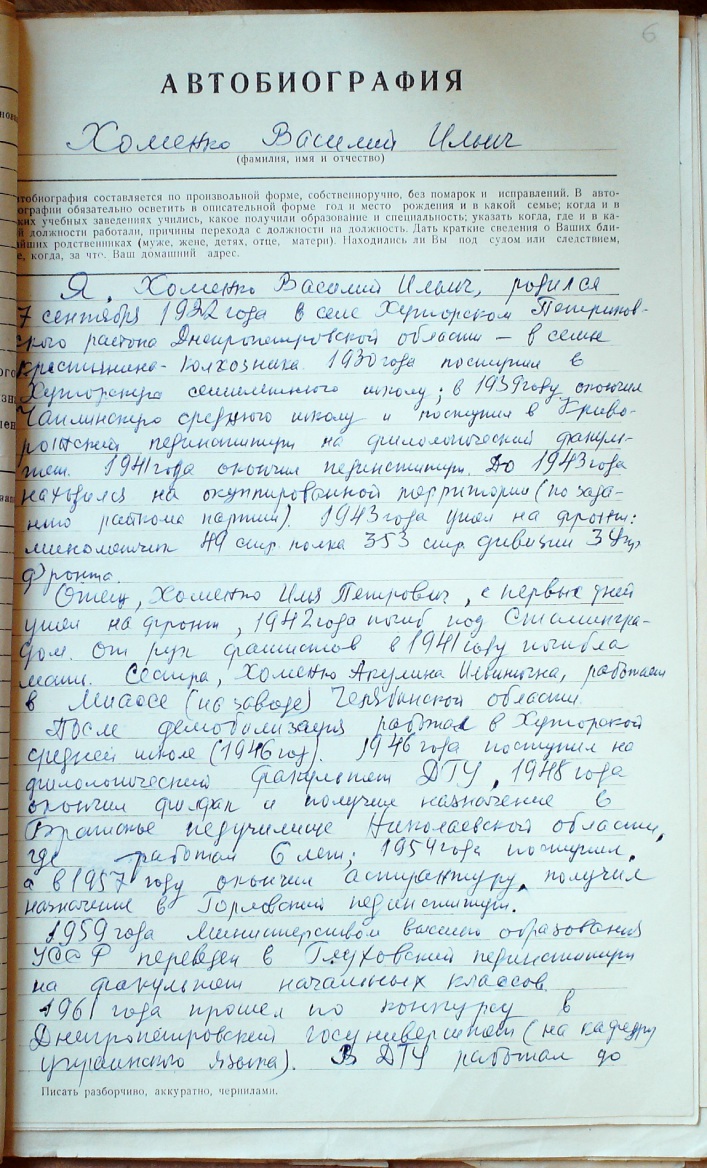 6
АВТОБИОГРАФИЯ
Хоменко Василий Ильич
(фамилия, имя и отчество)
втобиография составляется по произвольной форме, собственноручно, без помарок и исправлений. В авто-
ографии обязательно осветить в описательной форме год и место рождения и в какой семье; когда и в
ких учебных заведениях учились, какое получили образование и специальность; указать когда, где и в ка-
й должности работали, причины перехода с должности на должность. Дать краткие сведения о Ваших бли-
айших родственниках (муже, жене, детях, отце, матери). Находились ли Вы под судом или следствием,
е, когда, за что. Ваш домашний адрес.
Я, Хоменко Василий Ильич, родился
7 сентября 1922 года в селе Хуторском Петриков-
ского района Днепропетровской области – в семье
крестьянина-колхозника. 1930 года поступил в
Хуторскую семилетнюю школу; в 1939 году окончил
Чаплинскую среднюю школу и поступил в Криво-
рожский пединститут на филологический факуль-
тет. 1941 года окончил пединститут. До 1943 года
находился на оккупированной территории (по зада-
нию райкома партии). 1943 года ушел на фронт:
минометчик 49 стр. полка 353 стр. дивизии 3 Укр.
фронта.
Отец, Хоменко Илья Петрович, с первых дней
ушел на фронт, 1942 года погиб под Сталингра-
дом. От рук фашистов в 1941 году погибла
мать. Сестра, Хоменко Акулина Ильинична, работает
в Миассе (на заводе) Челябинской области.
После демобилизации работал в Хуторской
средней школе (1946 год). 1946 года поступил на
филологический факультет ДГУ, 1948 года
окончил филфак и получил назначение в
Братское педучилище Николаевской области,
где работал 6 лет; 1954 года поступил,
а в 1957 году окончил аспирантуру, получил
назначение в Горловский пединститут.
1959 года Министерством высшего образования
УССР переведен в Глуховский пединститут
на факультет начальных классов.
1961 года прошел по конкурсу в
Днепропетровский госуниверситет (на кафедру
украинского языка). В ДГУ работал до
Писать разборчиво, аккуратно, чернилами.